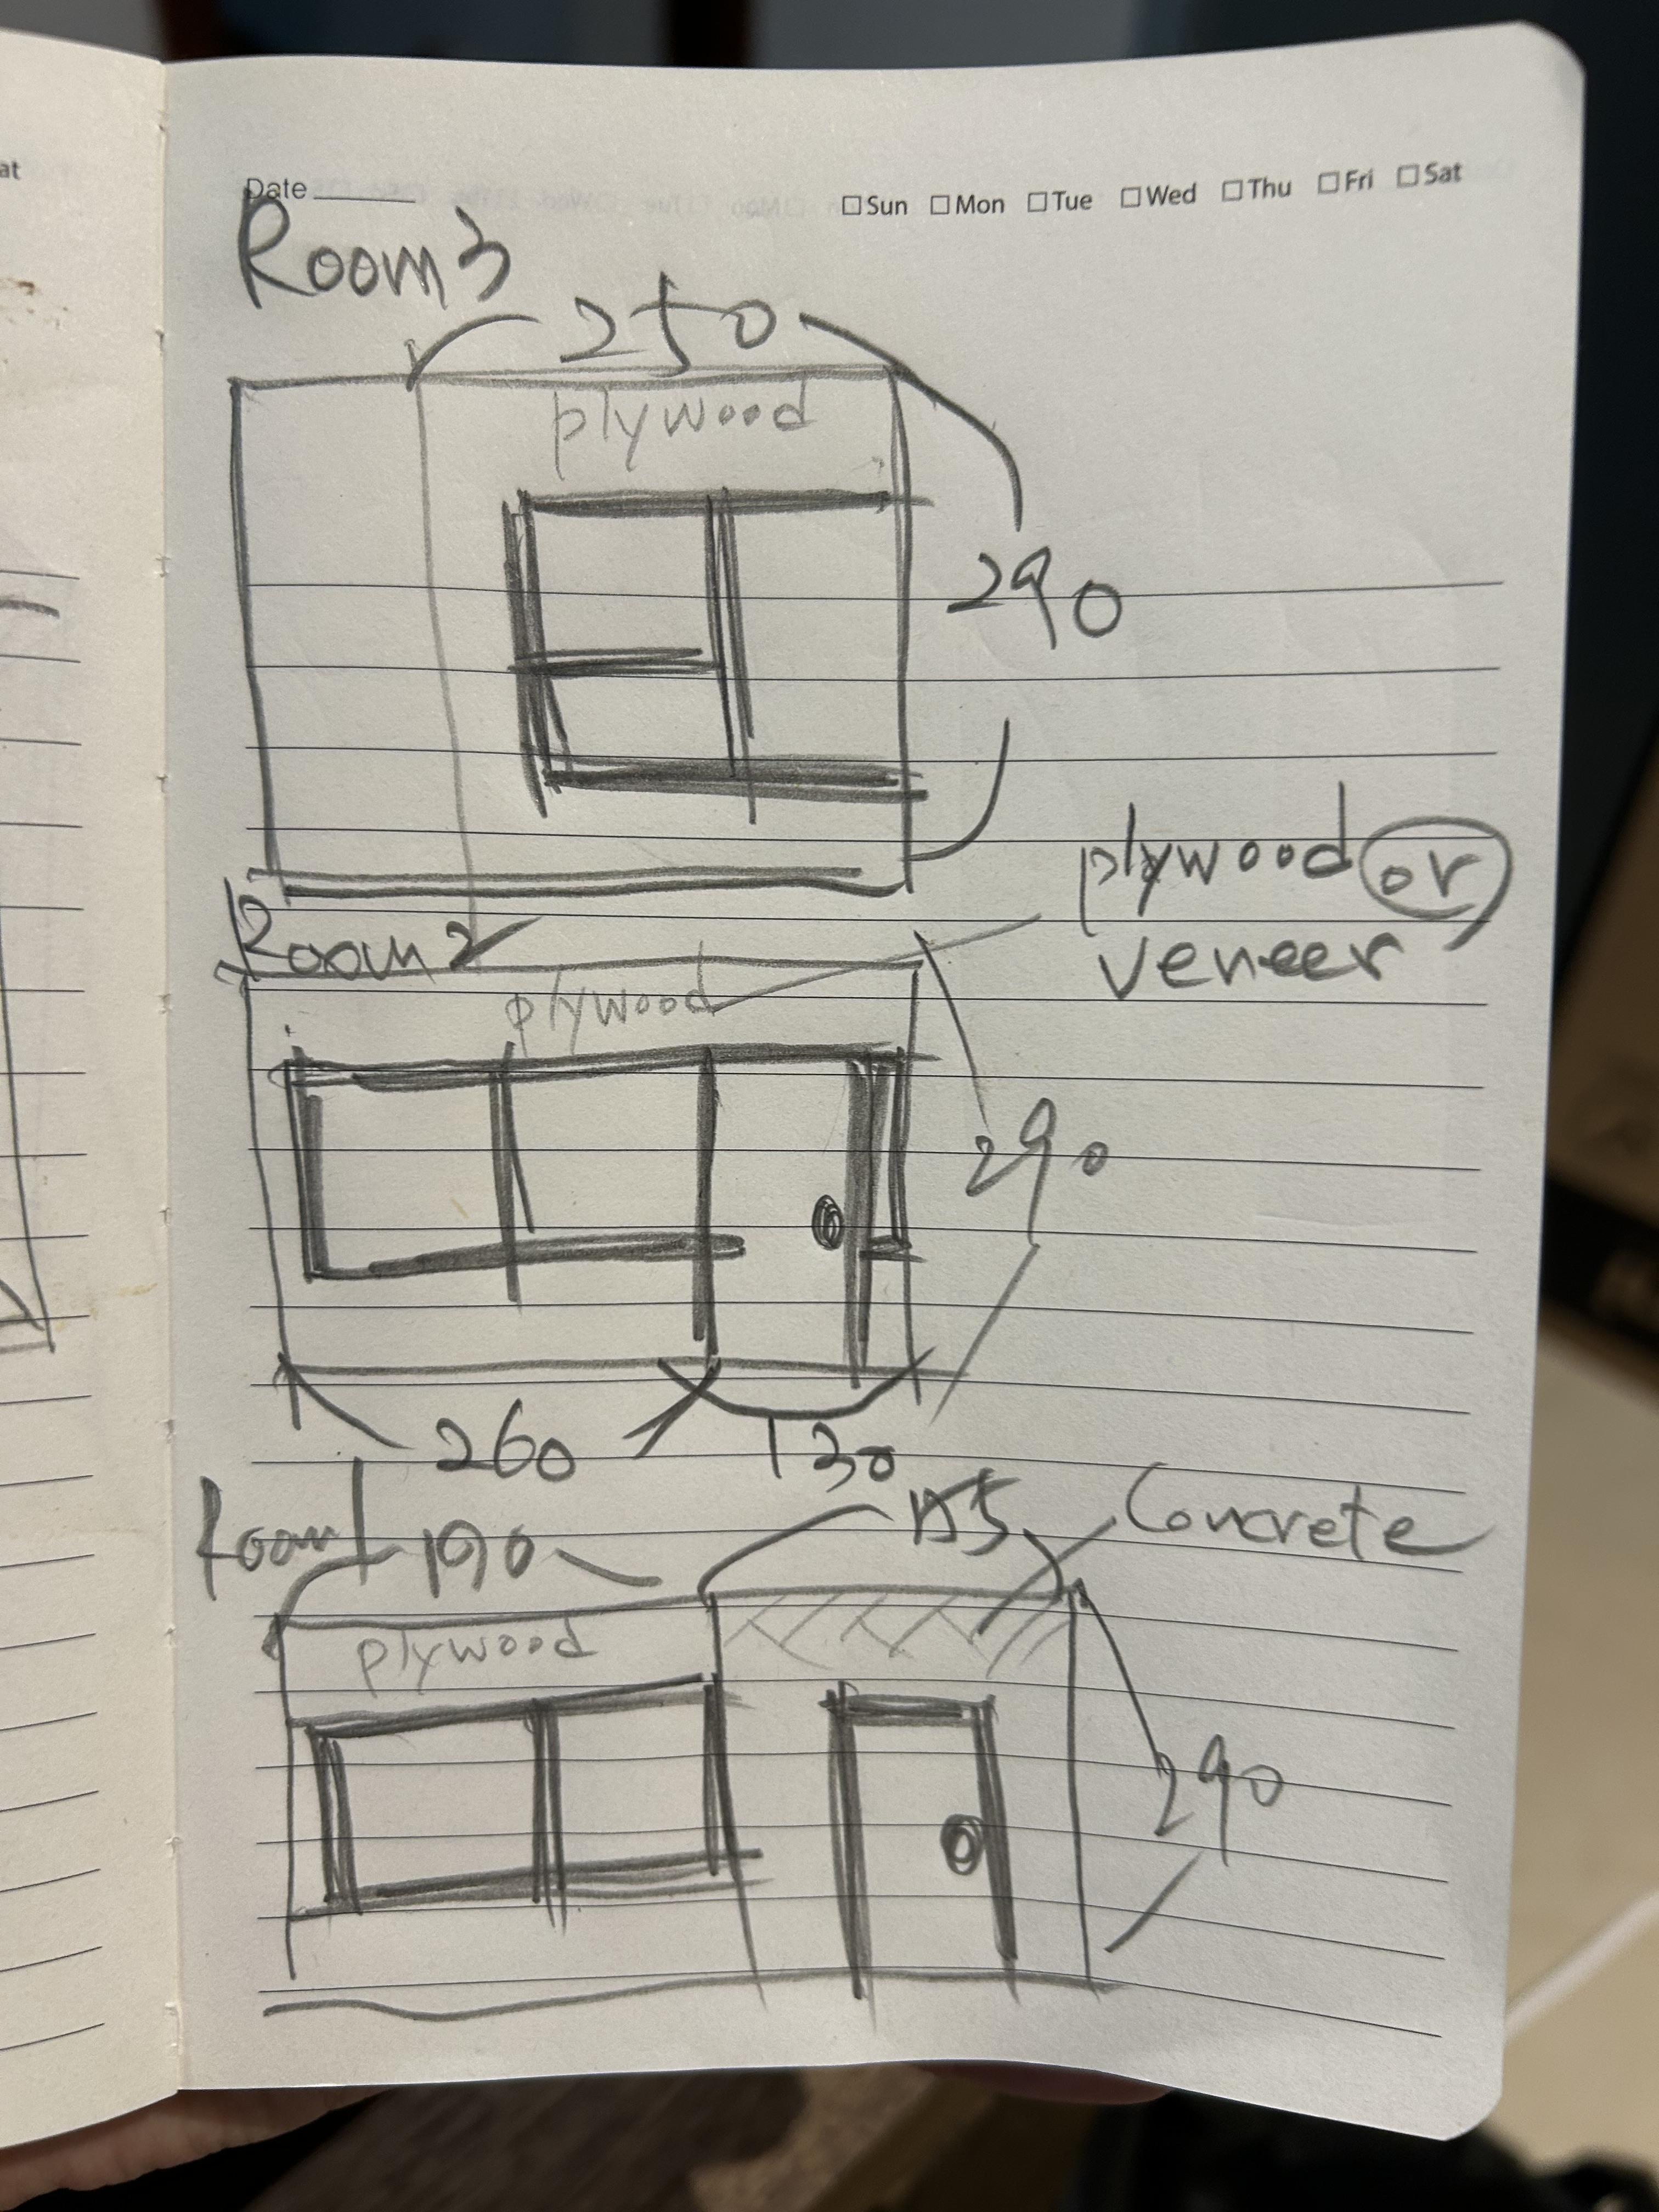 at
Date
Sun Mon Tue Wed Thu Fri Sat
Room 3
250
plywood
290
plywood or
veneer
Room 2
plywood
290
260
130
Room 1
190
Concrete
plywood
290